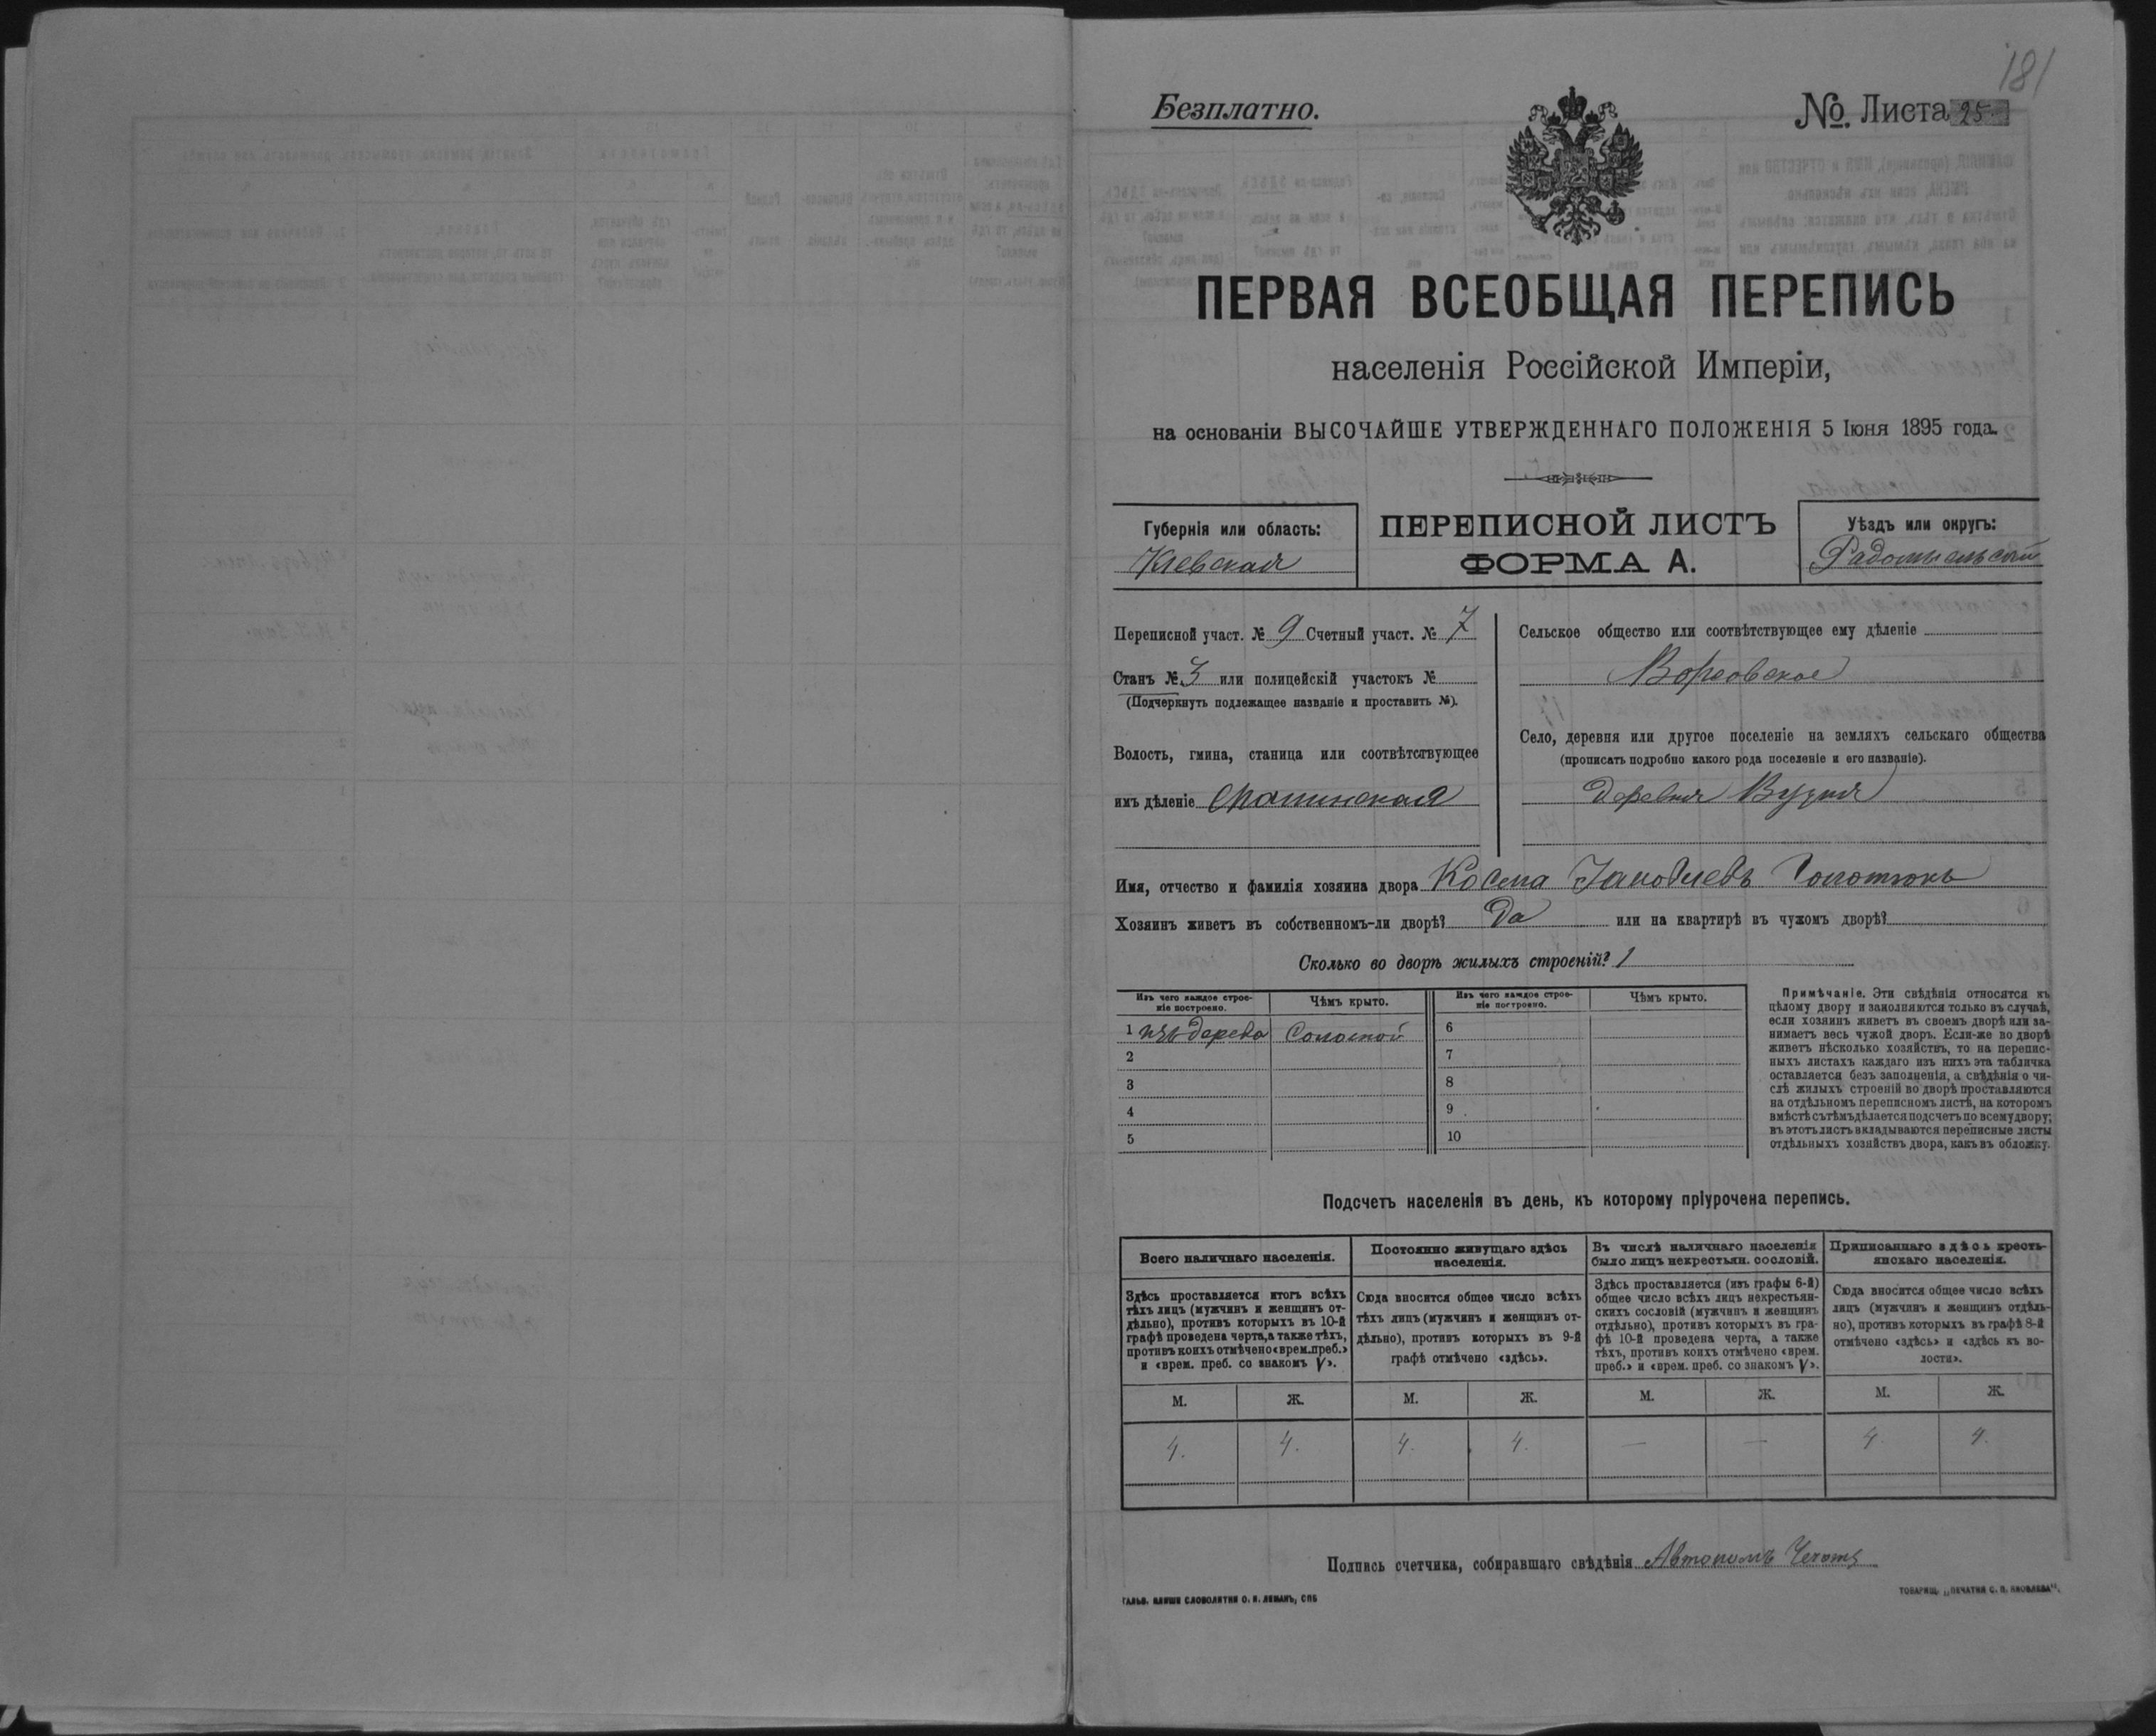 181
Безплатно.
№. Листа 25
ПЕРВАЯ ВСЕОБЩАЯ ПЕРЕПИСЬ
населенія Россійской Имперіи,
на основаніи ВЫСОЧАЙШЕ УТВЕРЖДЕННАГО ПОЛОЖЕНІЯ 5 Іюня 1895 года.
Губернія или область:
Кіевская
ПЕРЕПИСНОЙ ЛИСТЪ
ФОРМА А.
Уѣздъ или округъ:
Радомысльскій
Переписной участ. № 9 Счетный участ. № 7
Станъ № 3 или полицейскій участокъ №
(Подчеркнуть подлежащее названіе и проставить №).
Волость, гмина, станица или соотвѣтствующее
имъ дѣленіе
Сельское общество или соотвѣтствующее ему дѣленіе
Ворсовское
Село, деревня или другое поселеніе на земляхъ сельскаго общества
(прописать подробно какого рода поселеніе и его названіе).
деревня Вузня
Имя, отчество и фамилія хозяина двора Косма Яковлевъ
Хозяинъ живетъ въ собственномъ-ли дворѣ? Да или на квартирѣ въ чужомъ дворѣ?
Сколько во дворѣ жилыхъ строеній? 1
Изъ чего каждое строе-
ніе построено.
Чѣмъ крыто.
Изъ чего каждое строе-
ніе построено.
Чѣмъ крыто.
1 изъ дерева Соломой 6
2 7
3 8
4 9
5 10
Примѣчаніе. Эти свѣдѣнія относятся къ
цѣлому двору и заполняются только въ случаѣ,
если хозяинъ живетъ въ своемъ дворѣ или за-
нимаетъ весь чужой дворъ. Если-же во дворѣ
живетъ нѣсколько хозяйствъ, то на перепис-
ныхъ листахъ каждаго изъ нихъ эта табличка
оставляется безъ заполненія, а свѣдѣнія о чи-
слѣ жилыхъ строеній во дворѣ проставляются
на отдѣльномъ переписномъ листѣ, на которомъ
вмѣстѣ съ тѣмъ дѣлается подсчетъ по всему двору;
въ этотъ листъ вкладываются переписные листы
отдѣльныхъ хозяйствъ двора, какъ въ обложку.
Подсчетъ населенія въ день, къ которому пріурочена перепись.
Всего наличнаго населенія.
Здѣсь проставляется итогъ всѣхъ
тѣхъ лицъ (мужчинъ и женщинъ от-
дѣльно), противъ которыхъ въ 10-й
графѣ проведена черта, а также тѣхъ,
противъ коихъ отмѣчено «врем. преб.»
и «врем. преб. со знакомъ V».
Постоянно живущаго здѣсь
населенія.
Сюда вносится общее число всѣхъ
тѣхъ лицъ (мужчинъ и женщинъ от-
дѣльно), противъ которыхъ въ 9-й
графѣ отмѣчено «здѣсь».
Въ числѣ наличнаго населенія
было лицъ некрестьян. сословій.
Здѣсь проставляется (изъ графы 6-й)
общее число всѣхъ лицъ некрестьян-
скихъ сословій (мужчинъ и женщинъ
отдѣльно), противъ которыхъ въ гра-
фѣ 10-й проведена черта, а также
тѣхъ, противъ коихъ отмѣчено «врем.
преб.» и «врем. преб. со знакомъ V».
Приписаннаго здѣсь кресть-
янскаго населенія.
Сюда вносится общее число всѣхъ
лицъ (мужчинъ и женщинъ отдѣль-
но), противъ которыхъ въ графѣ 8-й
отмѣчено «здѣсь» и «здѣсь къ во-
лости».
М. Ж. М. Ж. М. Ж. М. Ж.
4. 4. 4. 4. — — 4. 4.
Подпись счетчика, собиравшаго свѣдѣнія Автономъ
ГАЛЬВ. КЛИШЕ СЛОВОЛИТНИ О. И. ЛЕМАНЪ, СПБ
ТОВАРИЩ. „ПЕЧАТНЯ С. П. ЯКОВЛЕВА".